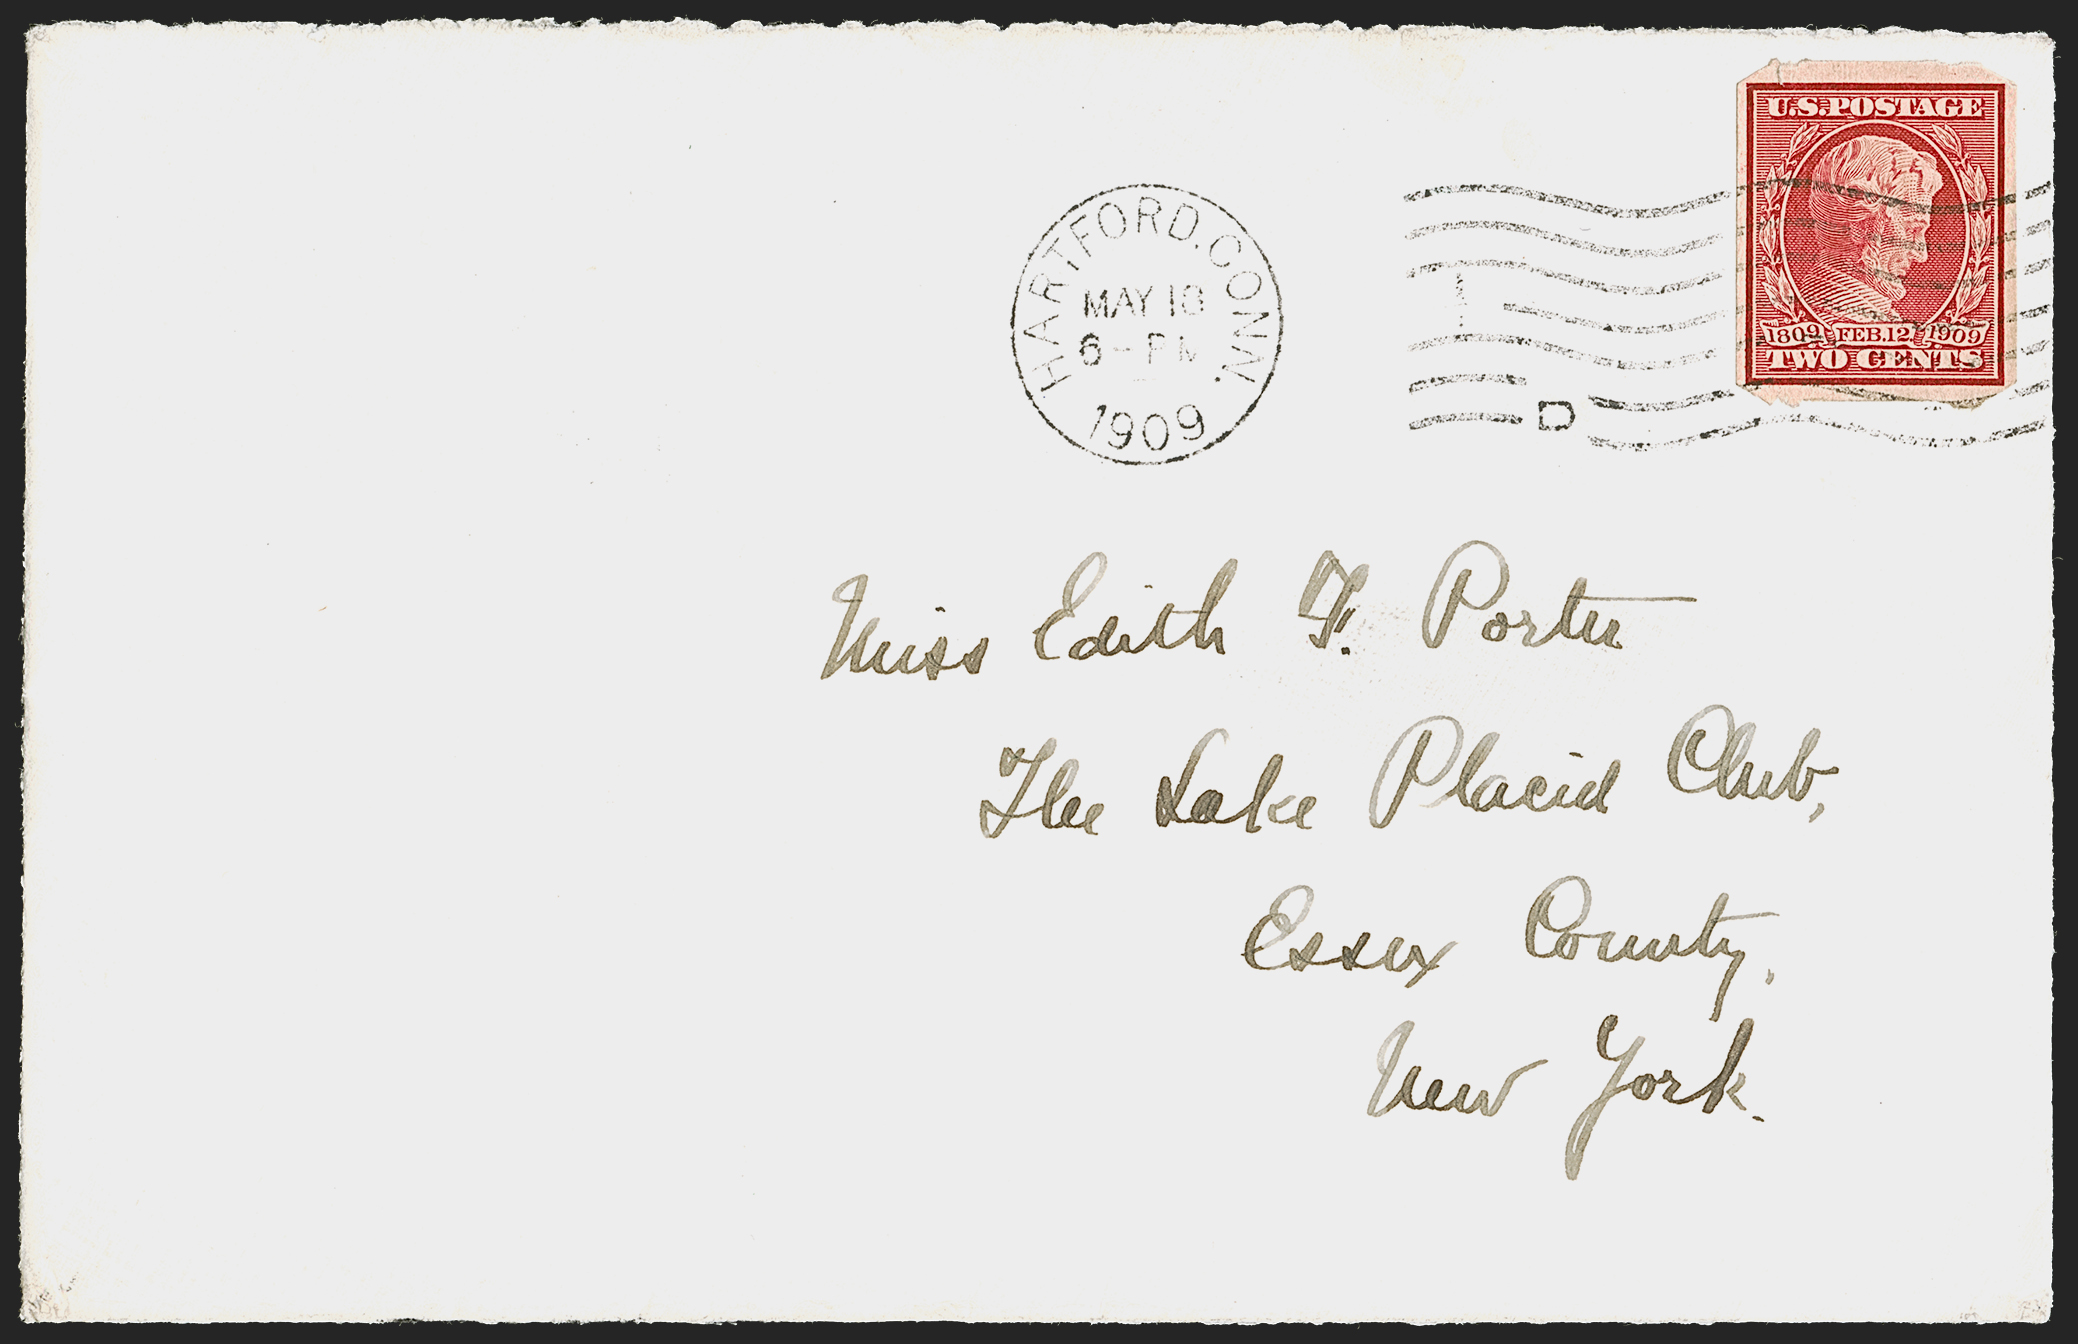 HARTFORD, CONN.
MAY 18
6 - PM
1909
D
U.S. POSTAGE
1809 FEB. 12 1909
TWO CENTS
Miss Edith F. Porter
The Lake Placid Club,
Essex County,
New York.